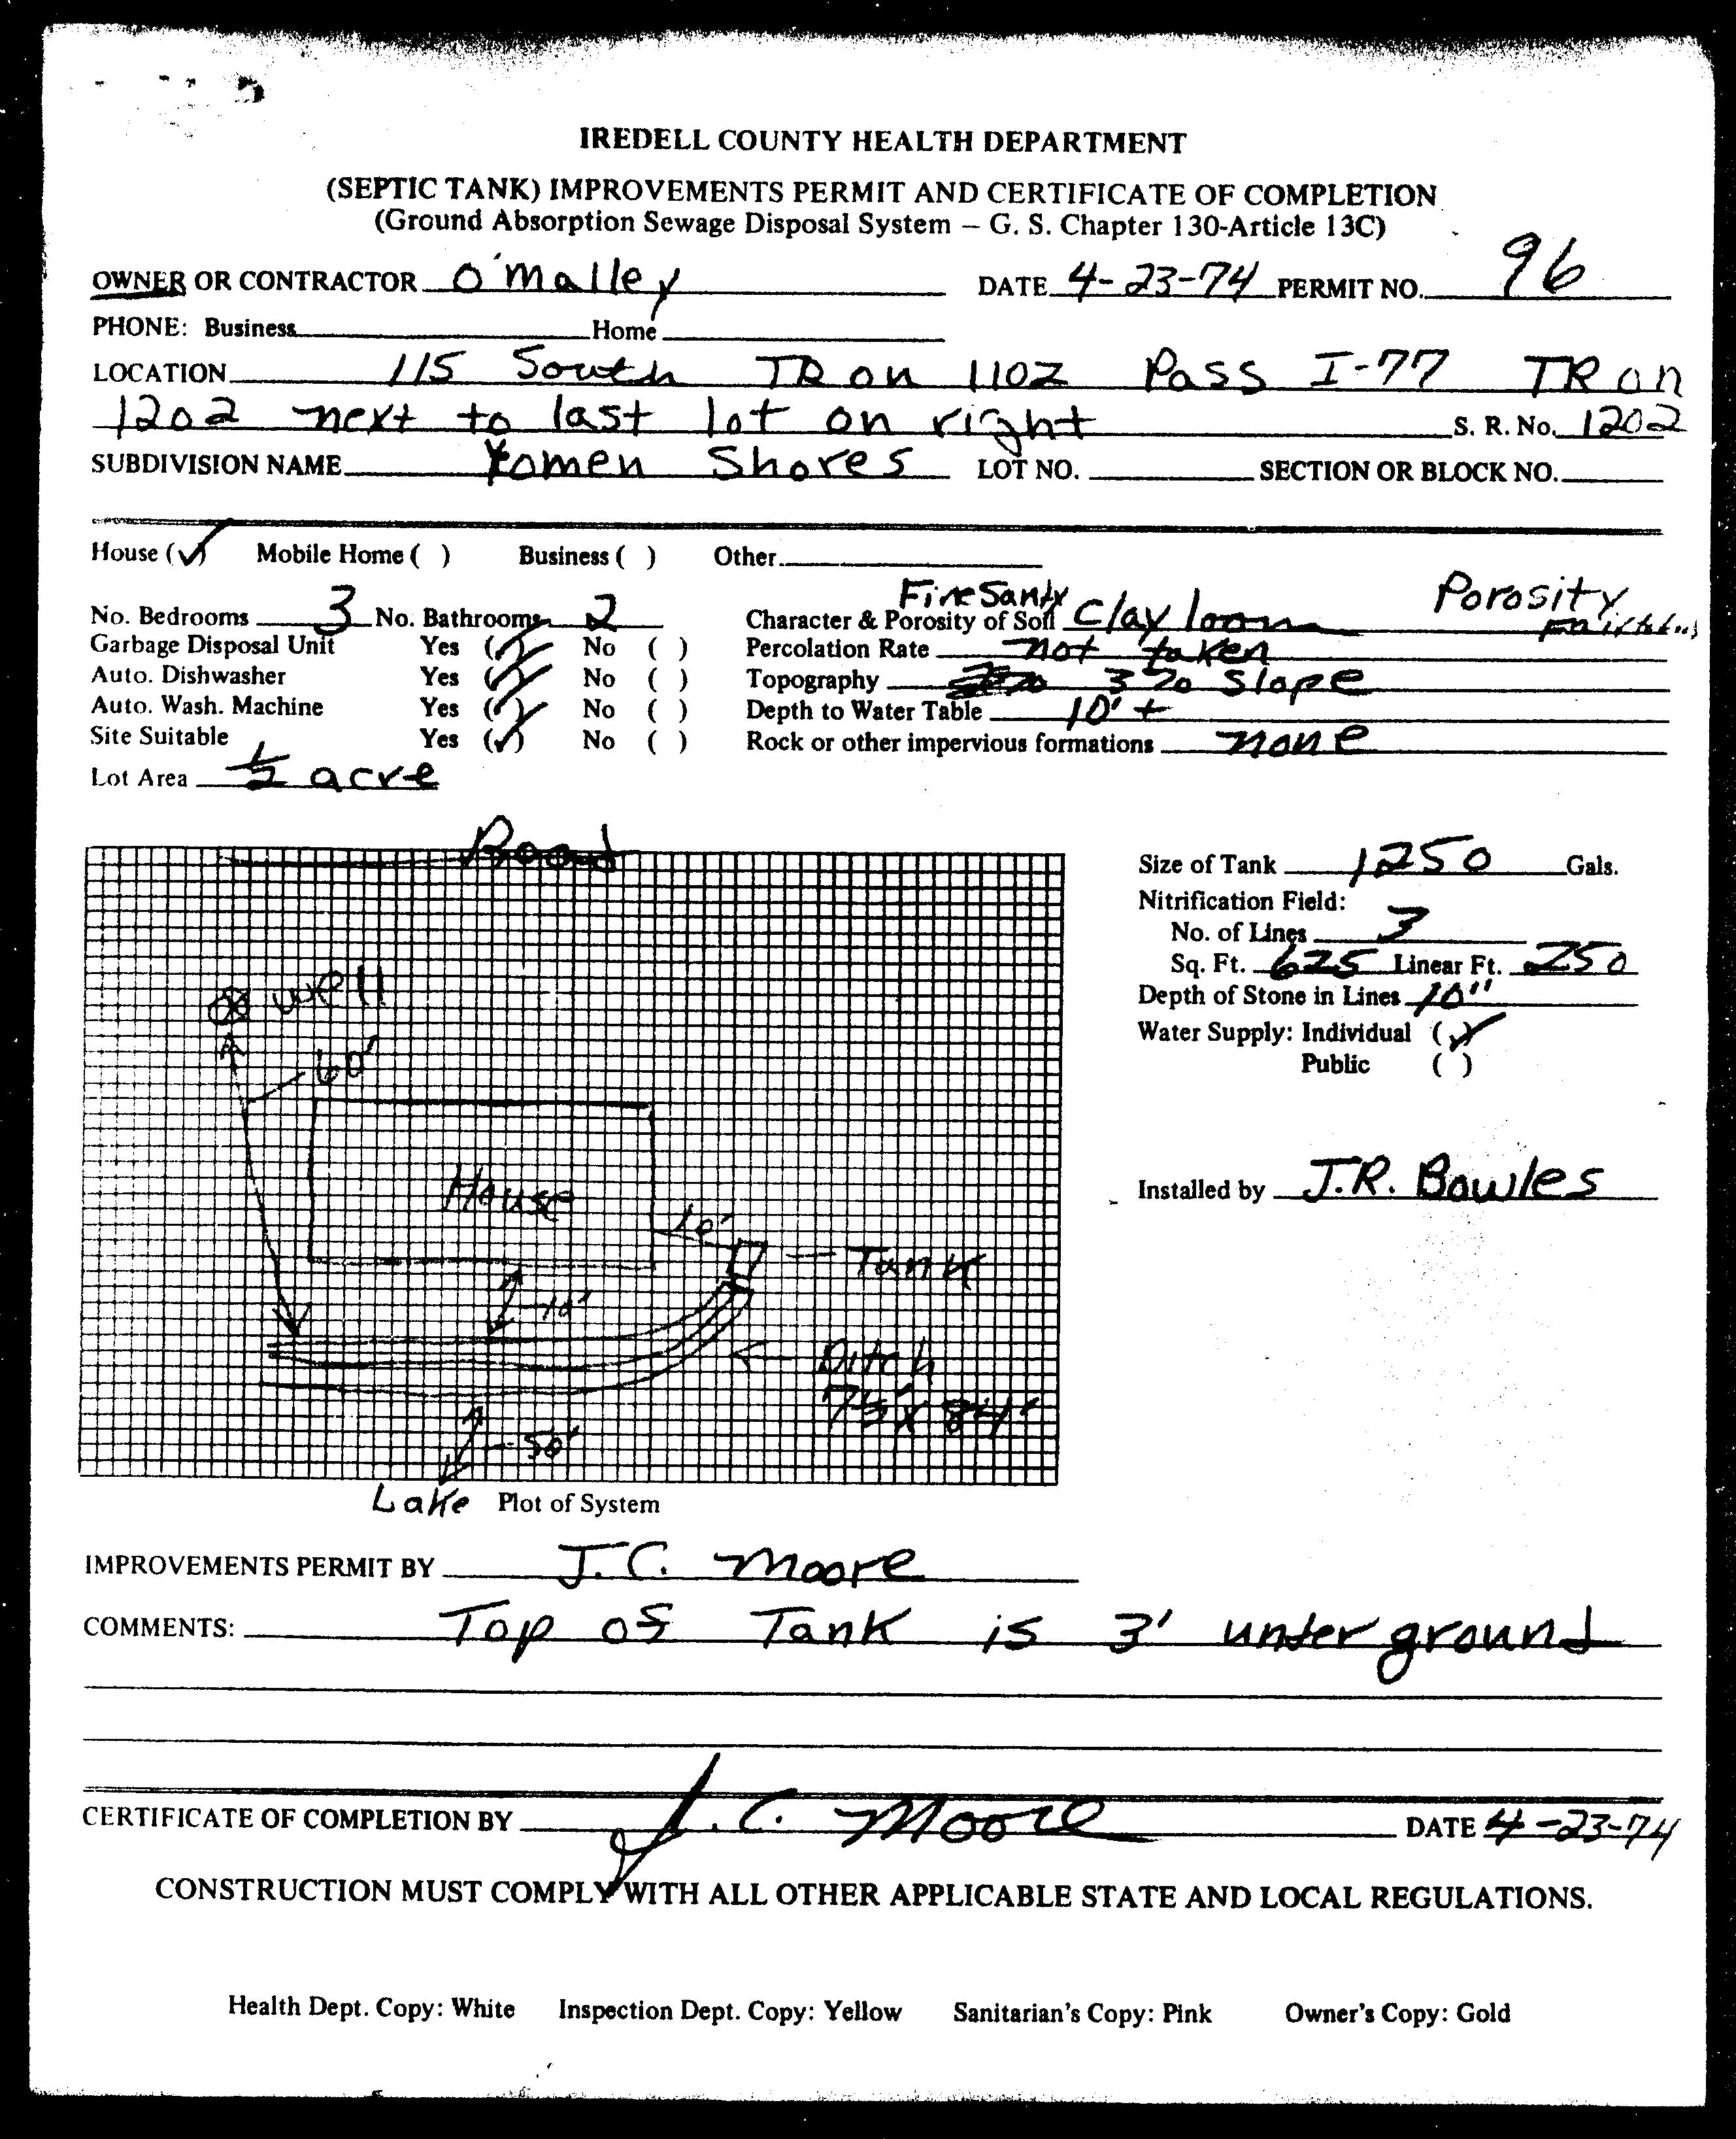 IREDELL COUNTY HEALTH DEPARTMENT
(SEPTIC TANK) IMPROVEMENTS PERMIT AND CERTIFICATE OF COMPLETION
(Ground Absorption Sewage Disposal System – G. S. Chapter 130-Article 13C)
OWNER OR CONTRACTOR O'Malley DATE 4-23-74 PERMIT NO. 96
PHONE: Business Home
LOCATION 115 South TR on 1102 Pass I-77 TR on
1202 next to last lot on right S. R. No. 1202
SUBDIVISION NAME Yomen Shores LOT NO. SECTION OR BLOCK NO.
House (✓) Mobile Home ( ) Business ( ) Other
Fine Sandy Porosity
No. Bedrooms 3 No. Bathrooms 2 Character & Porosity of Soil Clay loam
Garbage Disposal Unit Yes (✓) No ( ) Percolation Rate not taken
Auto. Dishwasher Yes (✓) No ( ) Topography 3% Slope
Auto. Wash. Machine Yes (✓) No ( ) Depth to Water Table 10' +
Site Suitable Yes (✓) No ( ) Rock or other impervious formations none
Lot Area ½ acre
Road
Size of Tank 1250 Gals.
Nitrification Field:
No. of Lines 3
Sq. Ft. 625 Linear Ft. 250
Depth of Stone in Lines 10"
Water Supply: Individual (✓)
Public ( )
well
60'
House
Installed by J.R. Bowles
10'
Tank
10'
Ditch
84'
50'
Lake Plot of System
IMPROVEMENTS PERMIT BY J.C. Moore
COMMENTS: Top of Tank is 3' under ground
CERTIFICATE OF COMPLETION BY J. C. Moore DATE 4-23-74
CONSTRUCTION MUST COMPLY WITH ALL OTHER APPLICABLE STATE AND LOCAL REGULATIONS.
Health Dept. Copy: White Inspection Dept. Copy: Yellow Sanitarian's Copy: Pink Owner's Copy: Gold